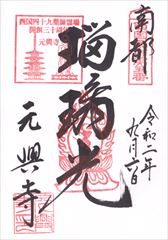 南都
西国四十九薬師霊場
開創三十周年
元興寺
瑠璃光
令和二年
九月六日
元興寺